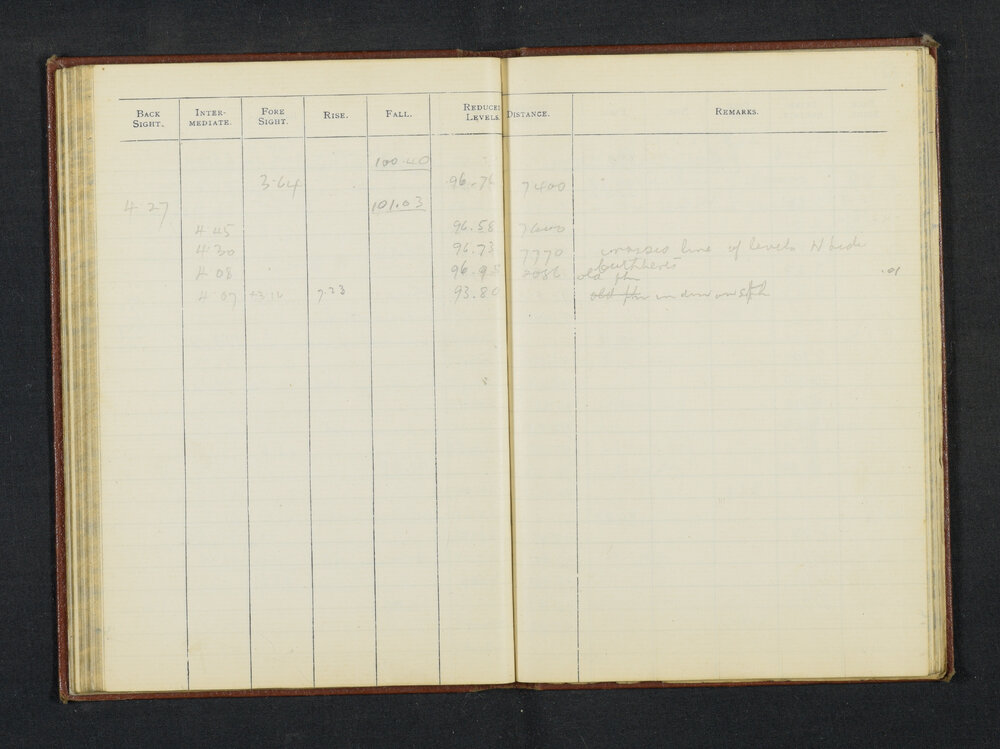 BACK SIGHT. INTER-MEDIATE. FORE SIGHT. RISE. FALL. REDUCED LEVELS. DISTANCE. REMARKS.
100.40
3.64 96.76 7400
4 27 101.03
4 45 96.58 7600
4 30 96.73 7770 crosses line of levels N side
4 08 96.95 old ph .01
4 07 7.23 93.80 old